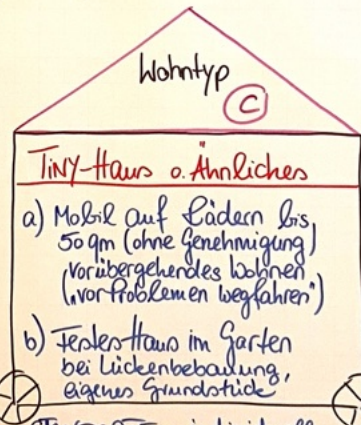 Wohntyp
C
Tiny-Haus o. Ähnliches
a) Mobil auf Rädern bis
50 qm (ohne Genehmigung)
vorübergehendes Wohnen
("vor Problemen wegfahren")
b) Festes Haus im Garten
bei Lückenbebauung,
eigenes Grundstück